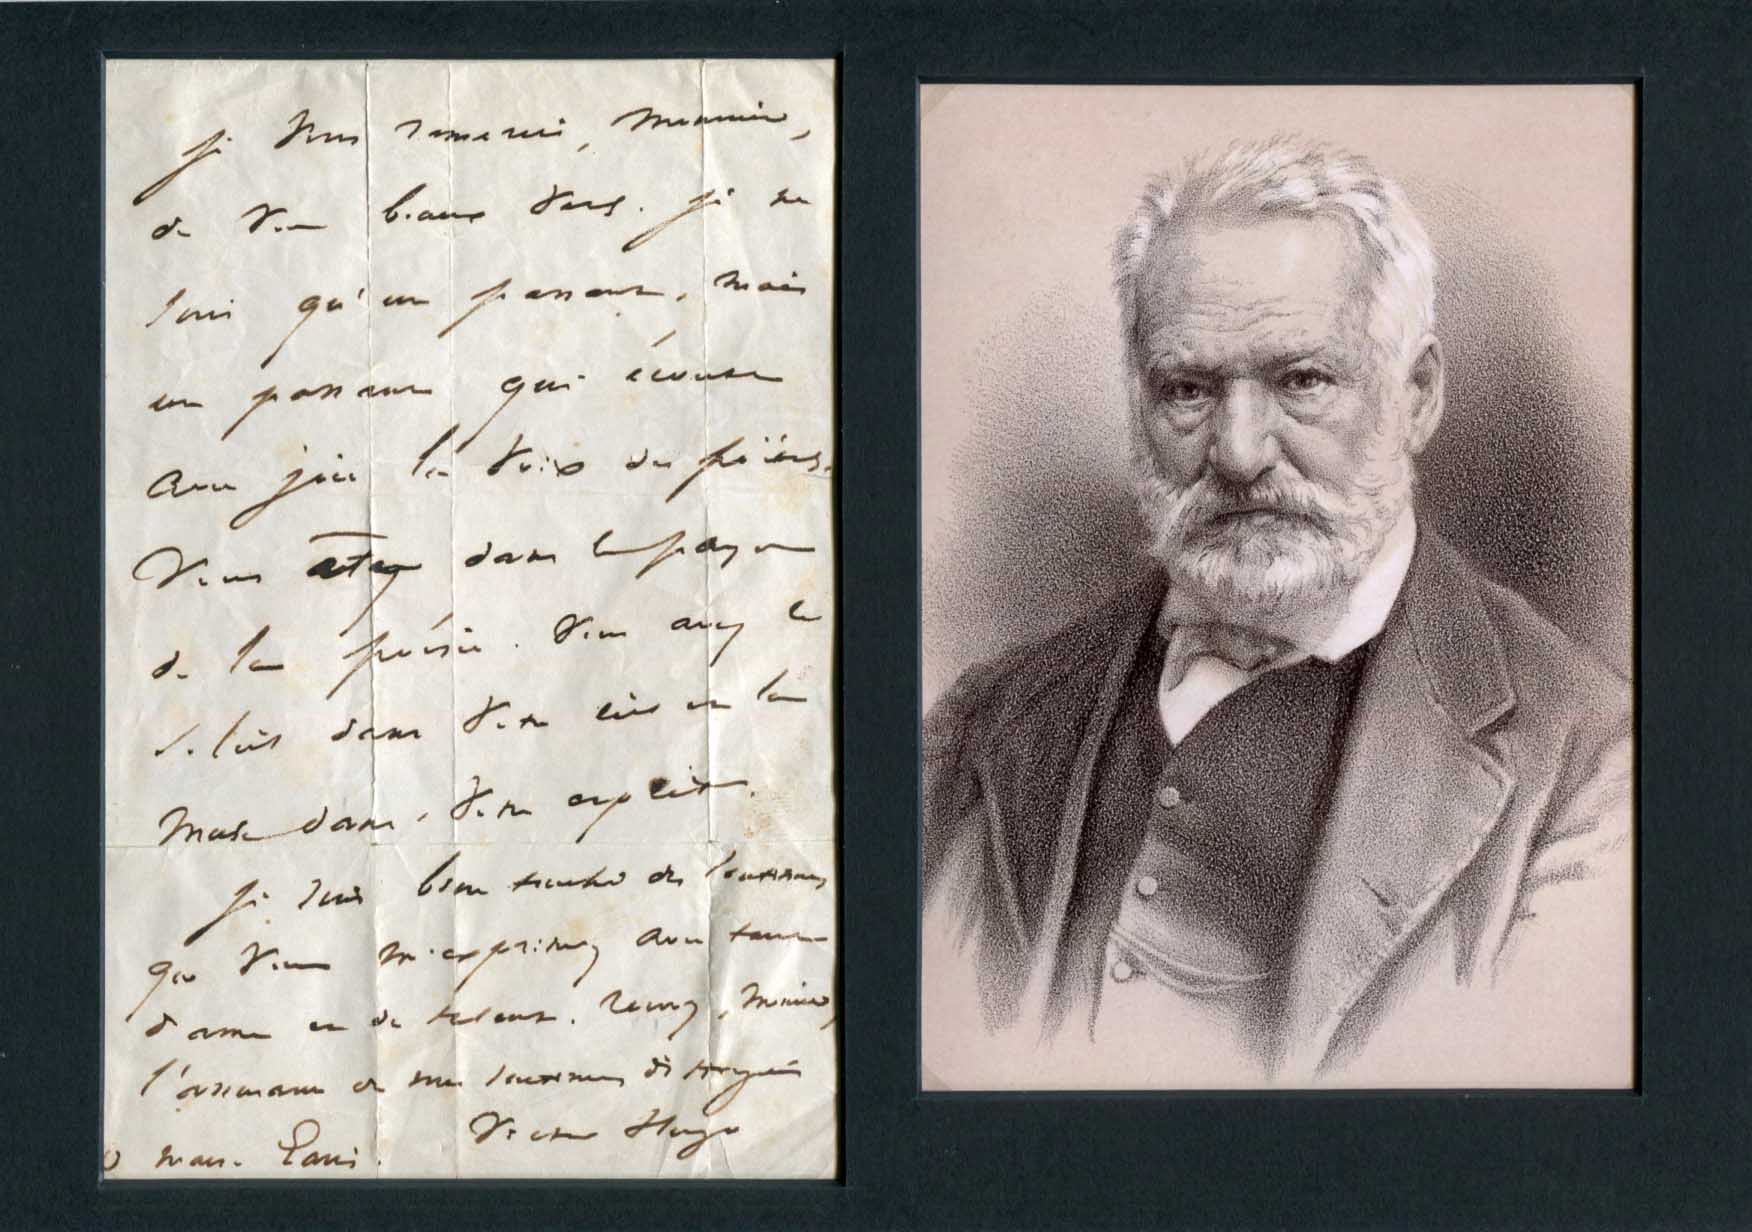 Je vous remercie, Monsieur,
de vos beaux vers. Je ne
suis qu'un passant, mais
un passant qui écoute
avec joie la voix des poëtes.
Vous êtes dans le pays
de la poésie. Vous avez le
soleil dans votre ciel et la
muse dans votre esprit.
Je suis bien touché des sentiments
que vous m'exprimez avec tant
d'âme et de talent. Recevez, Monsieur,
l'assurance de mes sentiments distingués
Victor Hugo
mars. Paris.